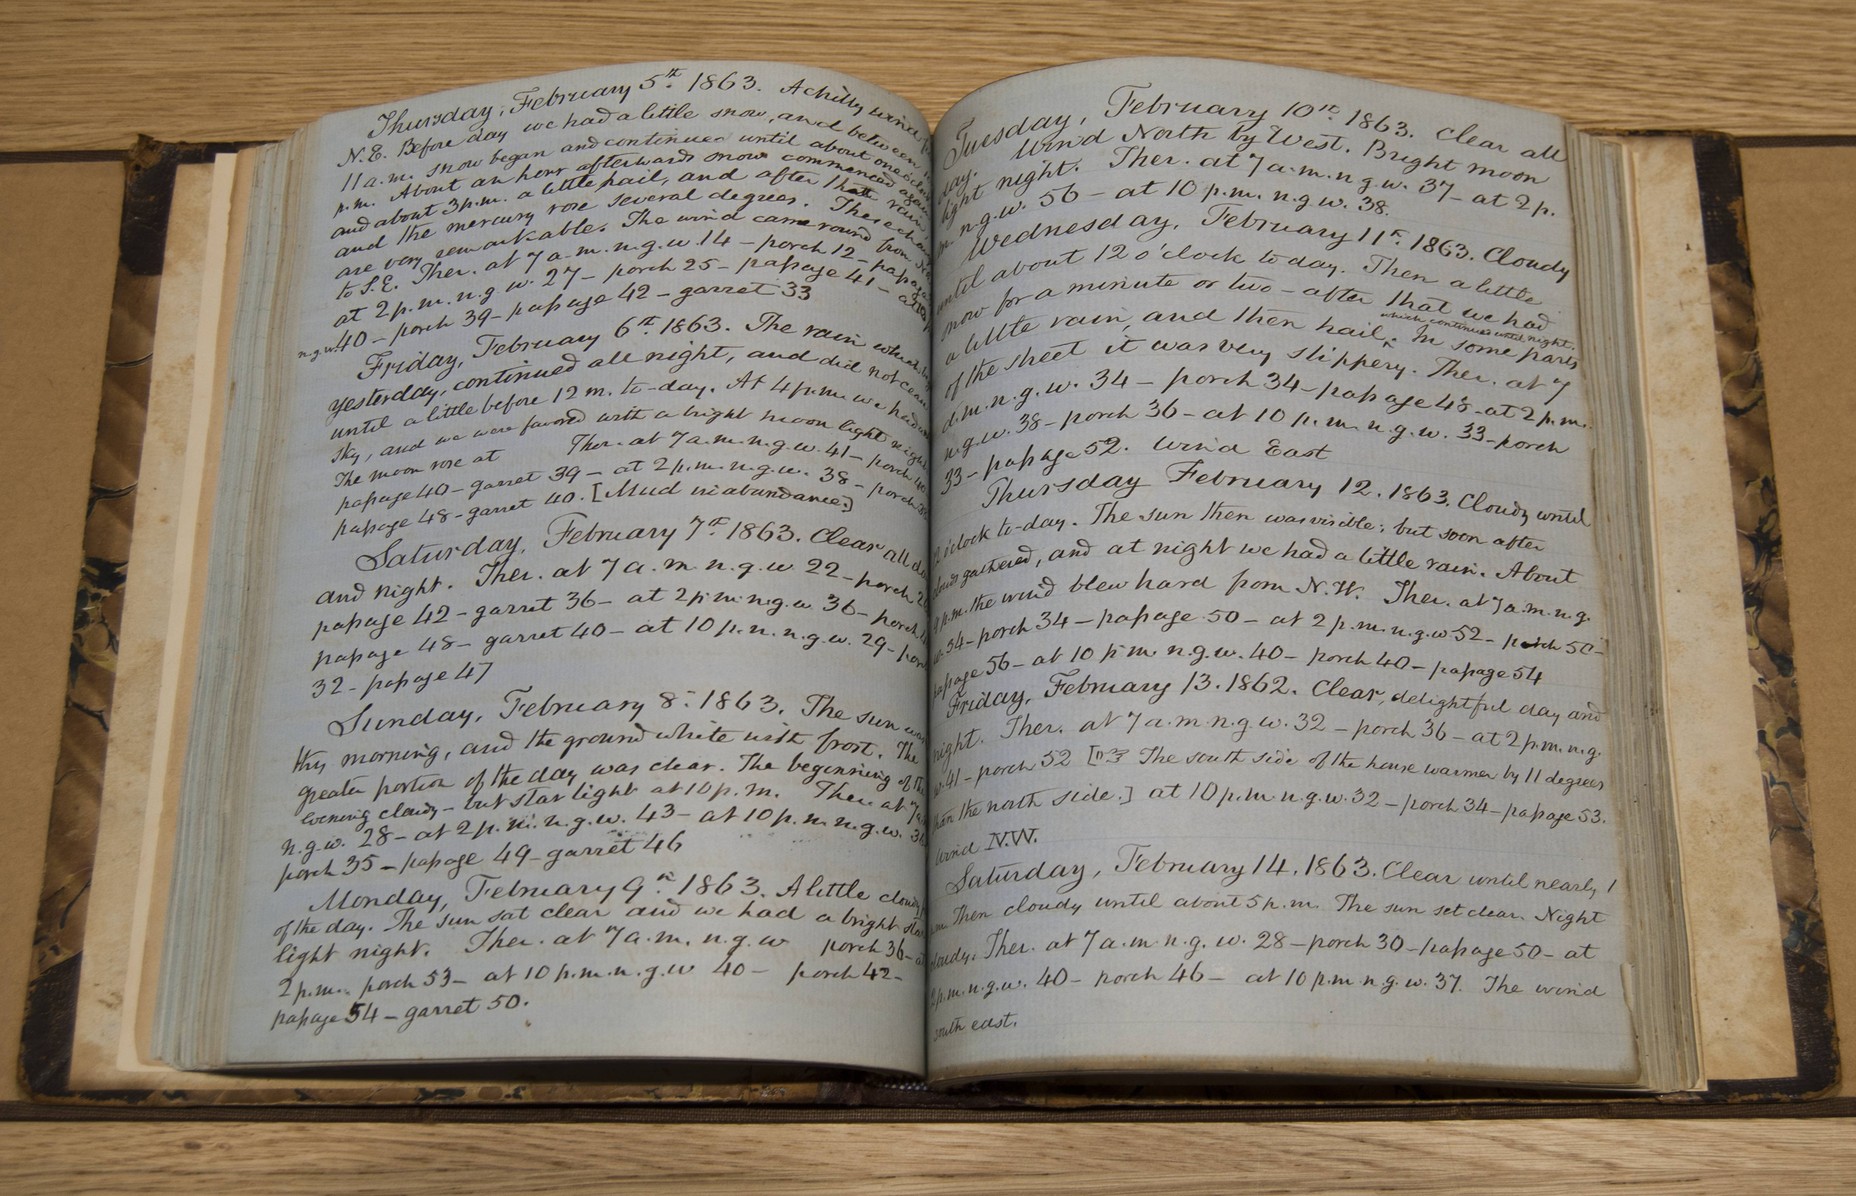 Thursday, February 5th 1863. A chilly wind
N.E. Before day we had a little snow, and between
11 a.m. snow began and continued until about one o'clock
p.m. About an hour afterwards snow commenced again
and about 3 p.m. a little hail, and after that rain
and the mercury rose several degrees. These
are very remarkable. The wind came round from
to S.E. Ther. at 7 a.m. n.g.w. 14 – porch 12 – passage
at 2 p.m. n.g.w. 27 – porch 25 – passage 41 – at
n.g.w. 40 – porch 39 – passage 42 – garret 33
Friday, February 6th 1863. The rain which
yesterday, continued all night, and did not cease
until a little before 12 m. to-day. At 4 p.m. we had
sky, and we were favored with a bright moon light night
The moon rose at Ther. at 7 a.m. n.g.w. 41 – porch 40
passage 40 – garret 39 – at 2 p.m. n.g.w. 38 – porch
passage 48 – garret 40. [Mud in abundance.]
Saturday, February 7th 1863. Clear all
and night. Ther. at 7 a.m. n.g.w. 22 – porch
passage 42 – garret 36 – at 2 p.m. n.g.w. 36 – porch
passage 48 – garret 40 – at 10 p.m. n.g.w. 29 – porch
32 – passage 47
Sunday, February 8th 1863. The sun was
this morning, and the ground white with frost. The
greater portion of the day was clear. The beginning of the
evening cloudy – but star light at 10 p.m. Ther. at 7
n.g.w. 28 – at 2 p.m. n.g.w. 43 – at 10 p.m. n.g.w.
porch 35 – passage 49 – garret 46
Monday, February 9th 1863. A little cloudy
of the day. The sun sat clear and we had a bright star
light night. Ther. at 7 a.m. n.g.w porch 36 – at
2 p.m. porch 53 – at 10 p.m. n.g.w 40 – porch 42 –
passage 54 – garret 50.
Tuesday, February 10th 1863. Clear all
day. Wind North by West. Bright moon
light night. Ther. at 7 a.m. n.g.w. 37 – at 2 p.
m. n.g.w. 56 – at 10 p.m. n.g.w. 38.
Wednesday, February 11th 1863. Cloudy
until about 12 o'clock to day. Then a little
snow for a minute or two – after that we had
a little rain, and then hail, which continued until night. In some parts
of the street it was very slippery. Ther. at 7
a.m. n.g.w. 34 – porch 34 – passage 48 – at 2 p.m.
n.g.w. 38 – porch 36 – at 10 p.m. n.g.w. 33 – porch
33 – passage 52. Wind East
Thursday February 12. 1863. Cloudy until
o'clock to-day. The sun then was visible; but soon after
clouds gathered, and at night we had a little rain. About
p.m. the wind blew hard from N.W. Ther. at 7 a.m. n.g.
w. 34 – porch 34 – passage 50 – at 2 p.m. n.g.w 52 – porch 50 –
passage 56 – at 10 p.m. n.g.w. 40 – porch 40 – passage 54
Friday, February 13. 1862. Clear, delightful day and
night. Ther. at 7 a.m. n.g.w. 32 – porch 36 – at 2 p.m. n.g.
w. 41 – porch 52 [The south side of the house warmer by 11 degrees
than the north side.] at 10 p.m n.g.w. 32 – porch 34 – passage 53.
Wind N.W.
Saturday, February 14. 1863. Clear until nearly 1
p.m. Then cloudy until about 5 p.m. The sun set clear. Night
cloudy. Ther. at 7 a.m. n.g.w. 28 – porch 30 – passage 50 – at
2 p.m. n.g.w. 40 – porch 46 – at 10 p.m n.g.w. 37. The wind
south east.